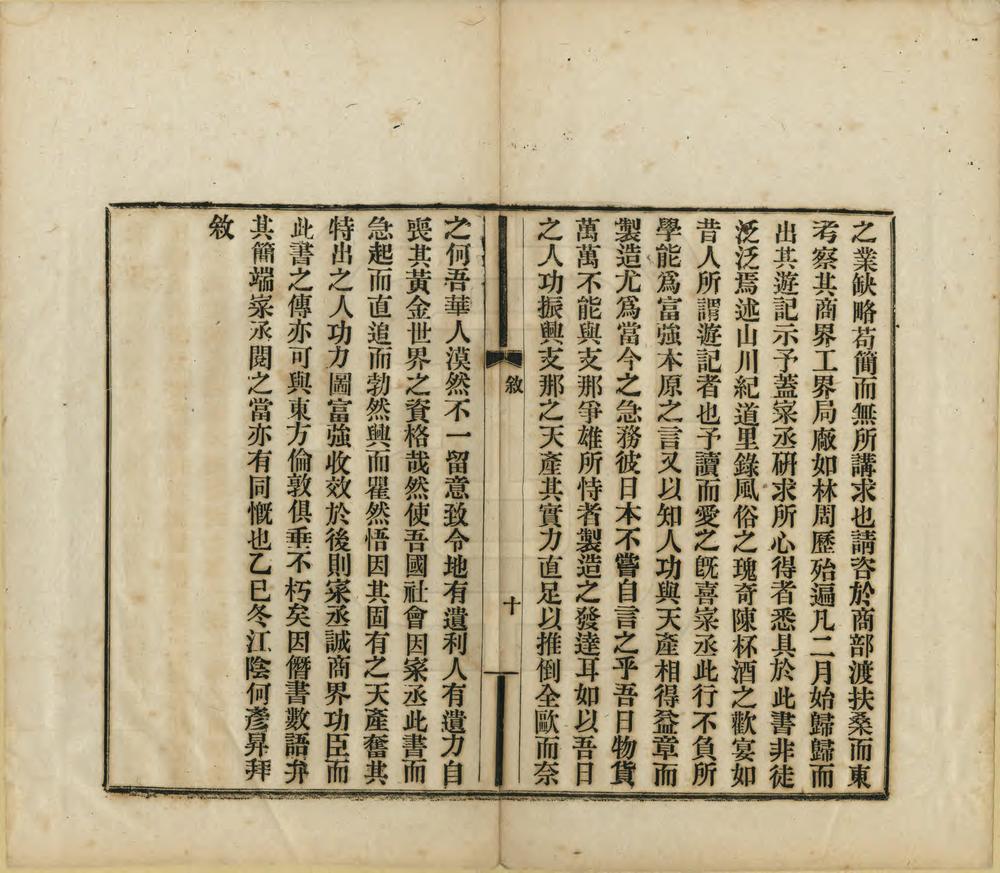 之業缺略苟簡而無所講求也請咨於商部渡扶桑而東
考察其商界工界局廠如林周歷殆遍凡二月始歸歸而
出其遊記示予蓋寀丞研求所心得者悉具於此書非徒
泛泛焉述山川紀道里錄風俗之瑰奇陳杯酒之歡宴如
昔人所謂遊記者也予讀而愛之旣喜寀丞此行不負所
學能爲富強本原之言又以知人功與天產相得益章而
製造尤爲當今之急務彼日本不嘗自言之乎吾日物貨
萬萬不能與支那爭雄所恃者製造之發達耳如以吾日
之人功振興支那之天產其實力直足以推倒全歐而奈
敘
十
之何吾華人漠然不一留意致令地有遺利人有遺力自
喪其黃金世界之資格哉然使吾國社會因寀丞此書而
急起而直追而勃然興而瞿然悟因其固有之天產奮其
特出之人功力圖富強收效於後則寀丞誠商界功臣而
此書之傳亦可與東方倫敦俱垂不朽矣因僭書數語弁
其簡端寀丞閱之當亦有同慨也乙巳冬江陰何彥昇拜
敘